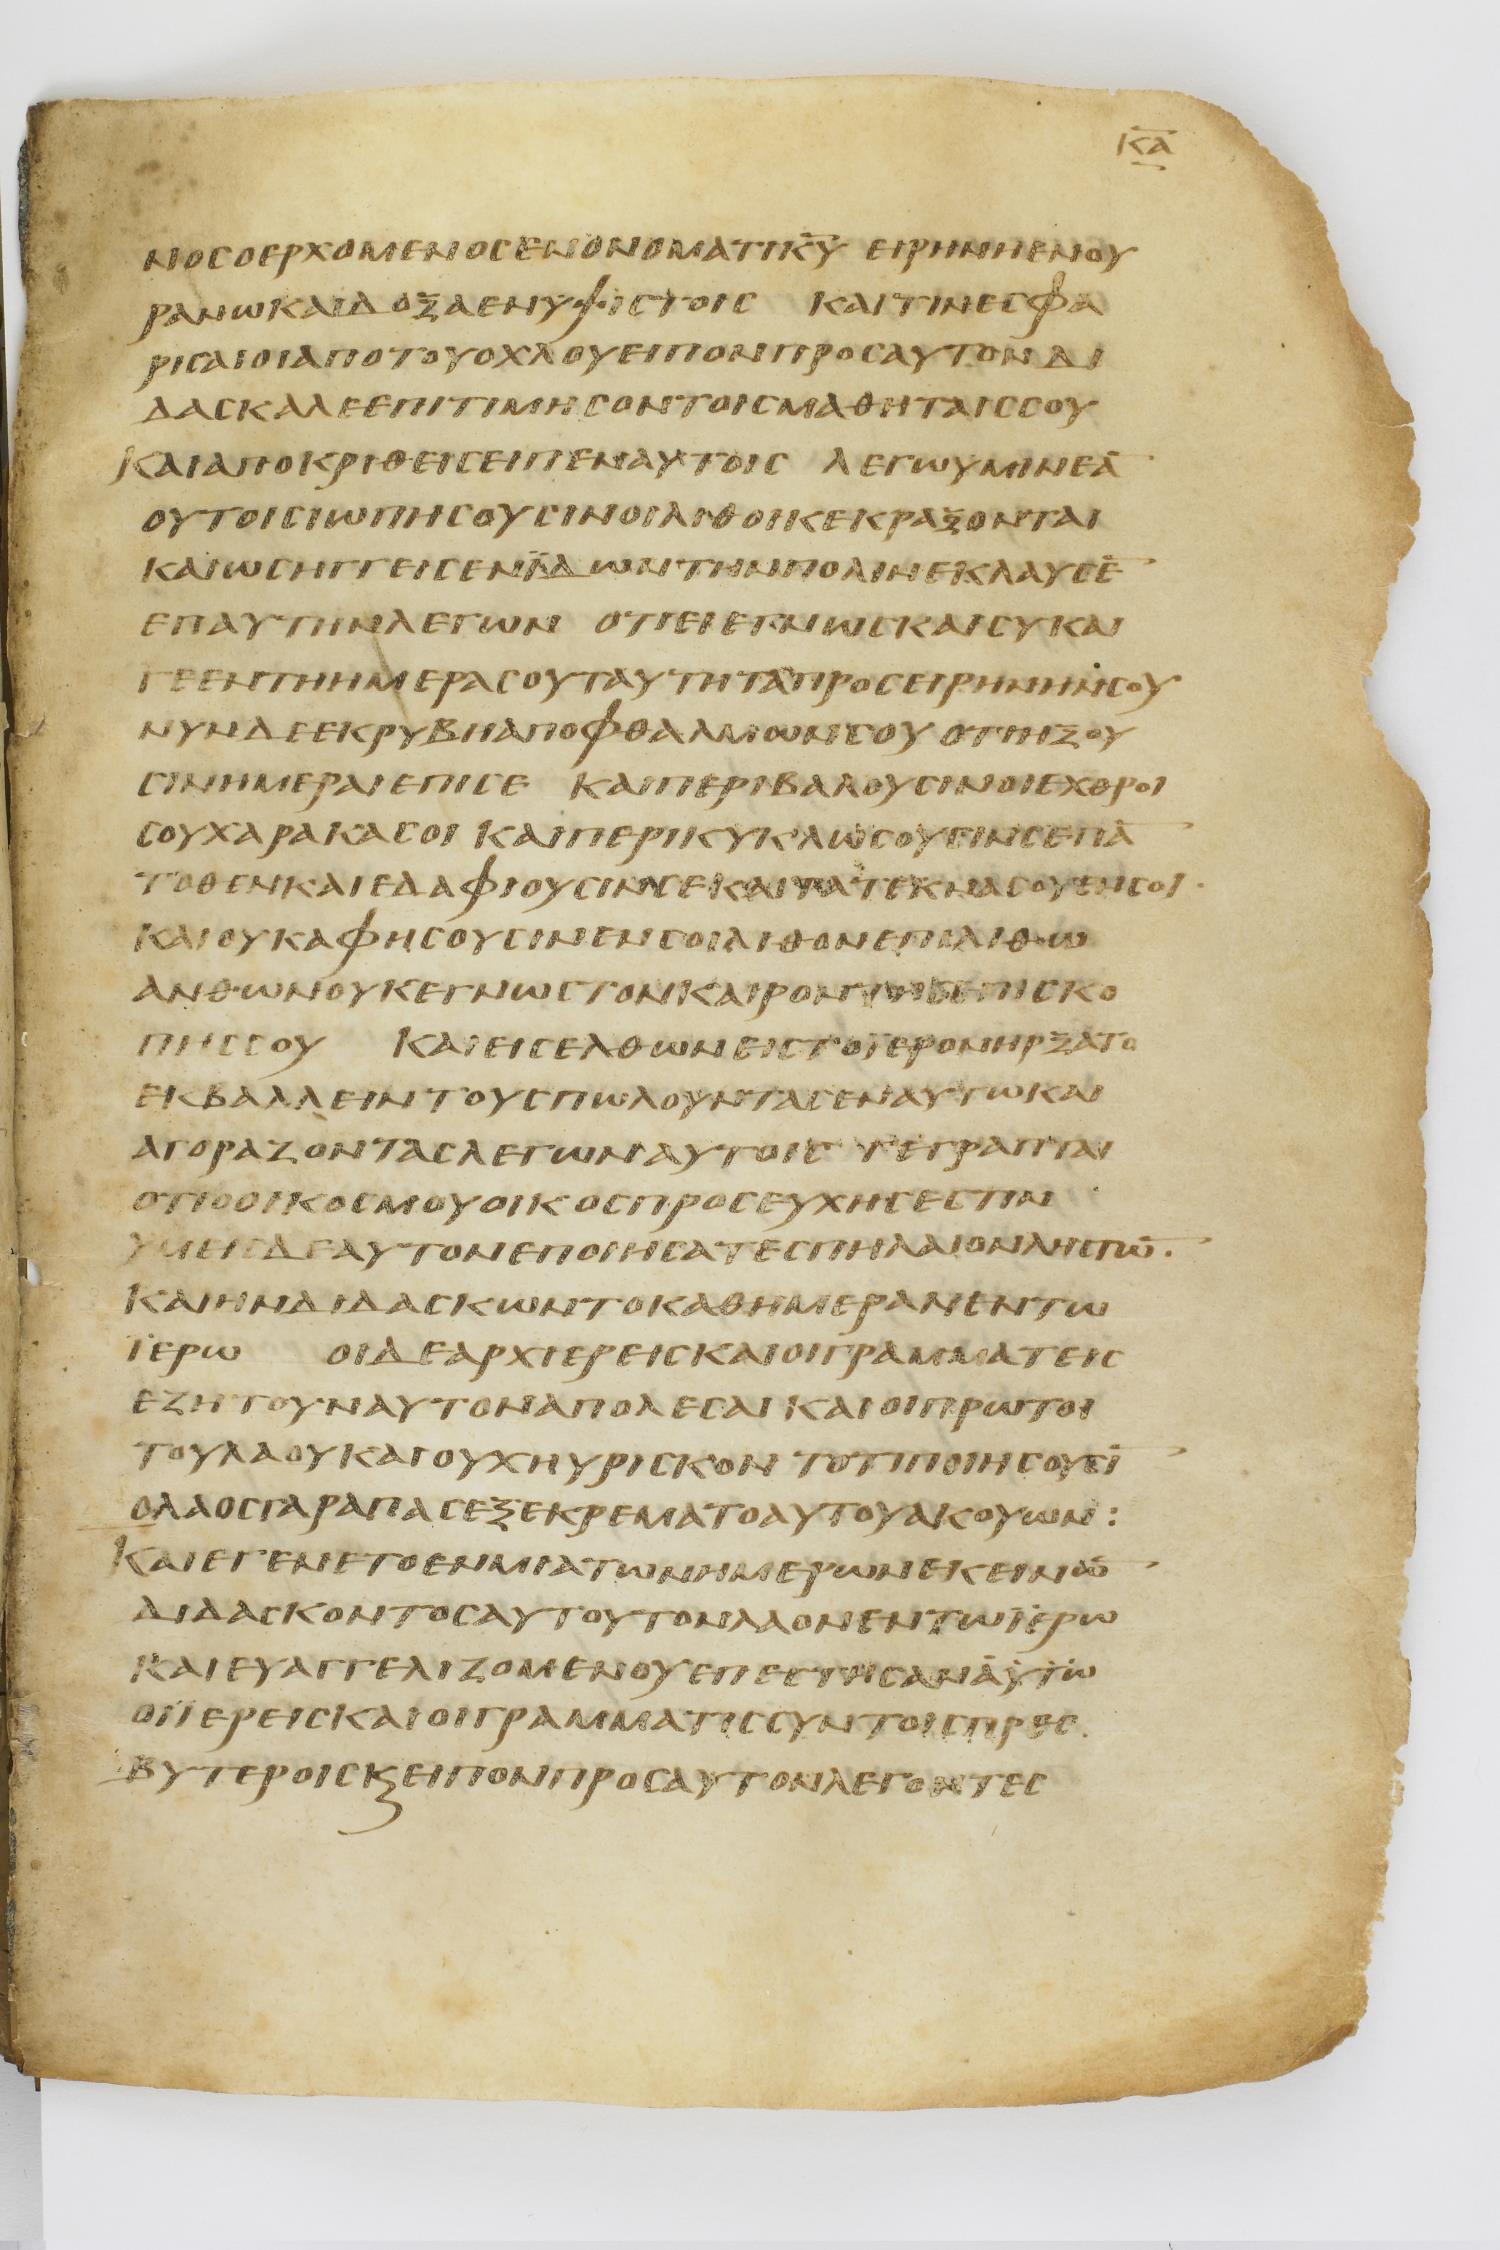 κα
νοσοερχομενοσενονοματικυ ειρηνηενου
ρανωκαιδοξαενυψιστοισ καιτινεσφα
ρισαιοιαποτουοχλουειπονπροσαυτονδι
δασκαλεεπιτιμησοντοισμαθηταισσου
καιαποκριθεισειπεναυτοισ λεγωυμινεα̅
ουτοισιωπησουσινοιλιθοικεκραξονται
καιωσηγγεισενϊδωντηνπολινεκλαυσε̅
επαυτηνλεγων οτιειεγνωσκαισυκαι
γεεντηημερασουταυτηταπροσειρηνηνσου
νυνδεεκρυβηαποφθαλμωνσου οτιηξου
σινημεραιεπισε καιπεριβαλουσινοιεχθροι
σουχαρακασοι καιπερικυκλωσουσινσεπα̅
τοθενκαιεδαφιουσινσεκαιτατεκνασουενσοι·
καιουκαφησουσινενσοιλιθονεπιλιθω
ανθωνουκεγνωστονκαιροντησεπισκο
πησσου καιεισελθωνειστοϊερονηρξατο
εκβαλλειντουσπωλουντασεναυτωκαι
αγοραζοντασλεγωναυτοισ γεγραπται
οτιοοικοσμουοικοσπροσευχησεστιν
υμεισδεαυτονεποιησατεσπηλαιονληστω̅·
καιηνδιδασκωντοκαθημερανεντω
ϊερω οιδεαρχιερεισκαιοιγραμματεισ
εζητουναυτοναπολεσαι καιοιπρωτοι
τουλαουκαιουχηυρισκον τοτιποιησουσι̅
ολαοσγαραπασεξεκρεματοαυτουακουων:
καιεγενετοενμιατωνημερωνεκεινω̅
διδασκοντοσαυτουτονλαονεντωϊερω
καιευαγγελιζομενουεπεστησαναυτω
οιϊερεισκαιοιγραμματισσυντοισπρεσ
βυτεροισκ̣ειπονπροσαυτονλεγοντεσ